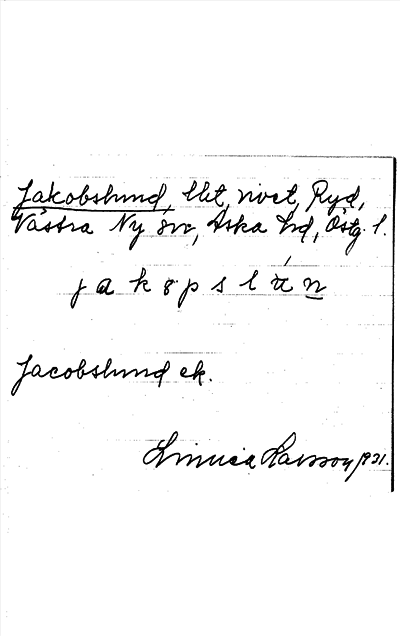 Jakobslund, lht, rivet, Ryd,
Västra Ny sn, Aska hd, Östg. l.
j a k o p s l u n
Jacobslund ek.
Linnéa Larsson 1931.